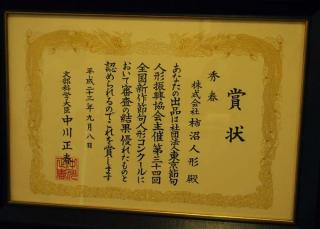 賞状
秀春
株式会社 柿沼人形 殿
あなたの出品は社団法人東京節句
人形振興協会主催第三十四回
全国新作節句人形コンクールに
おいて審査の結果優れたものと
認められるのでこれを賞します
平成二十三年九月八日
文部科学大臣 中川正春